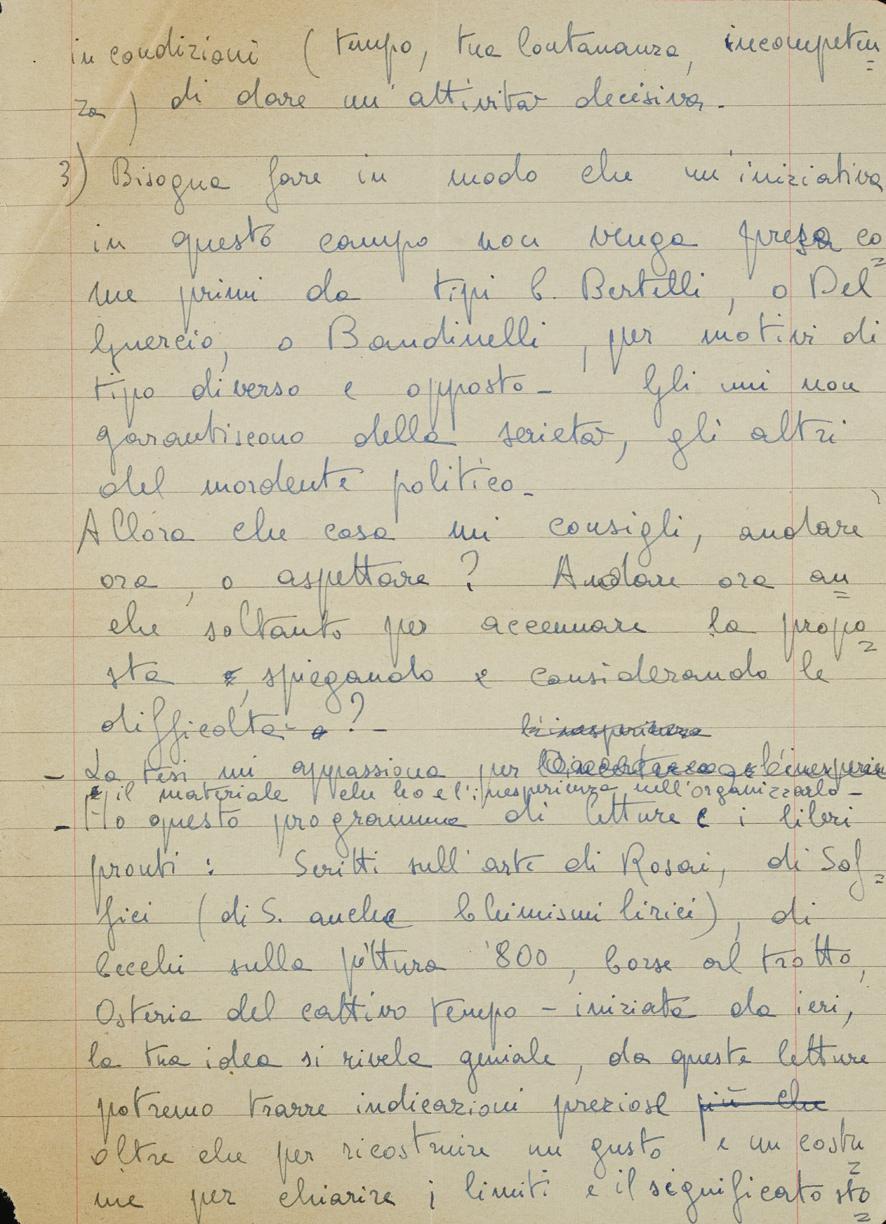 in condizioni (tempo, tua lontananza, incompeten=
za) di dare un'attività decisiva.
3) Bisogna fare in modo che un'iniziativa
in questo campo non venga presa co=
me primi da tipi C. Bertelli, o Del
Guercio, o Bandinelli, per motivi di
tipo diverso e opposto - Gli uni non
garantiscono della serietà, gli altri
del mordente politico -
Allora che cosa mi consigli, andare
ora, o aspettare? Andare ora an=
che soltanto per accennare la propo=
sta, spiegando e considerando le
difficoltà ? -
l'inesperienza
- La tesi mi appassiona per
il materiale che ho e l'inesperienza nell'organizzarlo -
- Ho questo programma di letture e i libri
pronti : Scritti sull'arte di Rosai, di Sof=
fici (di S. anche Chimismi lirici), di
Cecchi sulla pittura '800, Corse al trotto,
Osteria del cattivo tempo - iniziata da ieri,
la tua idea si rivela geniale, da queste letture
potremo trarre indicazioni preziose più che
oltre che per ricostruire un gusto e un costu=
me per chiarire i limiti e il significato sto=